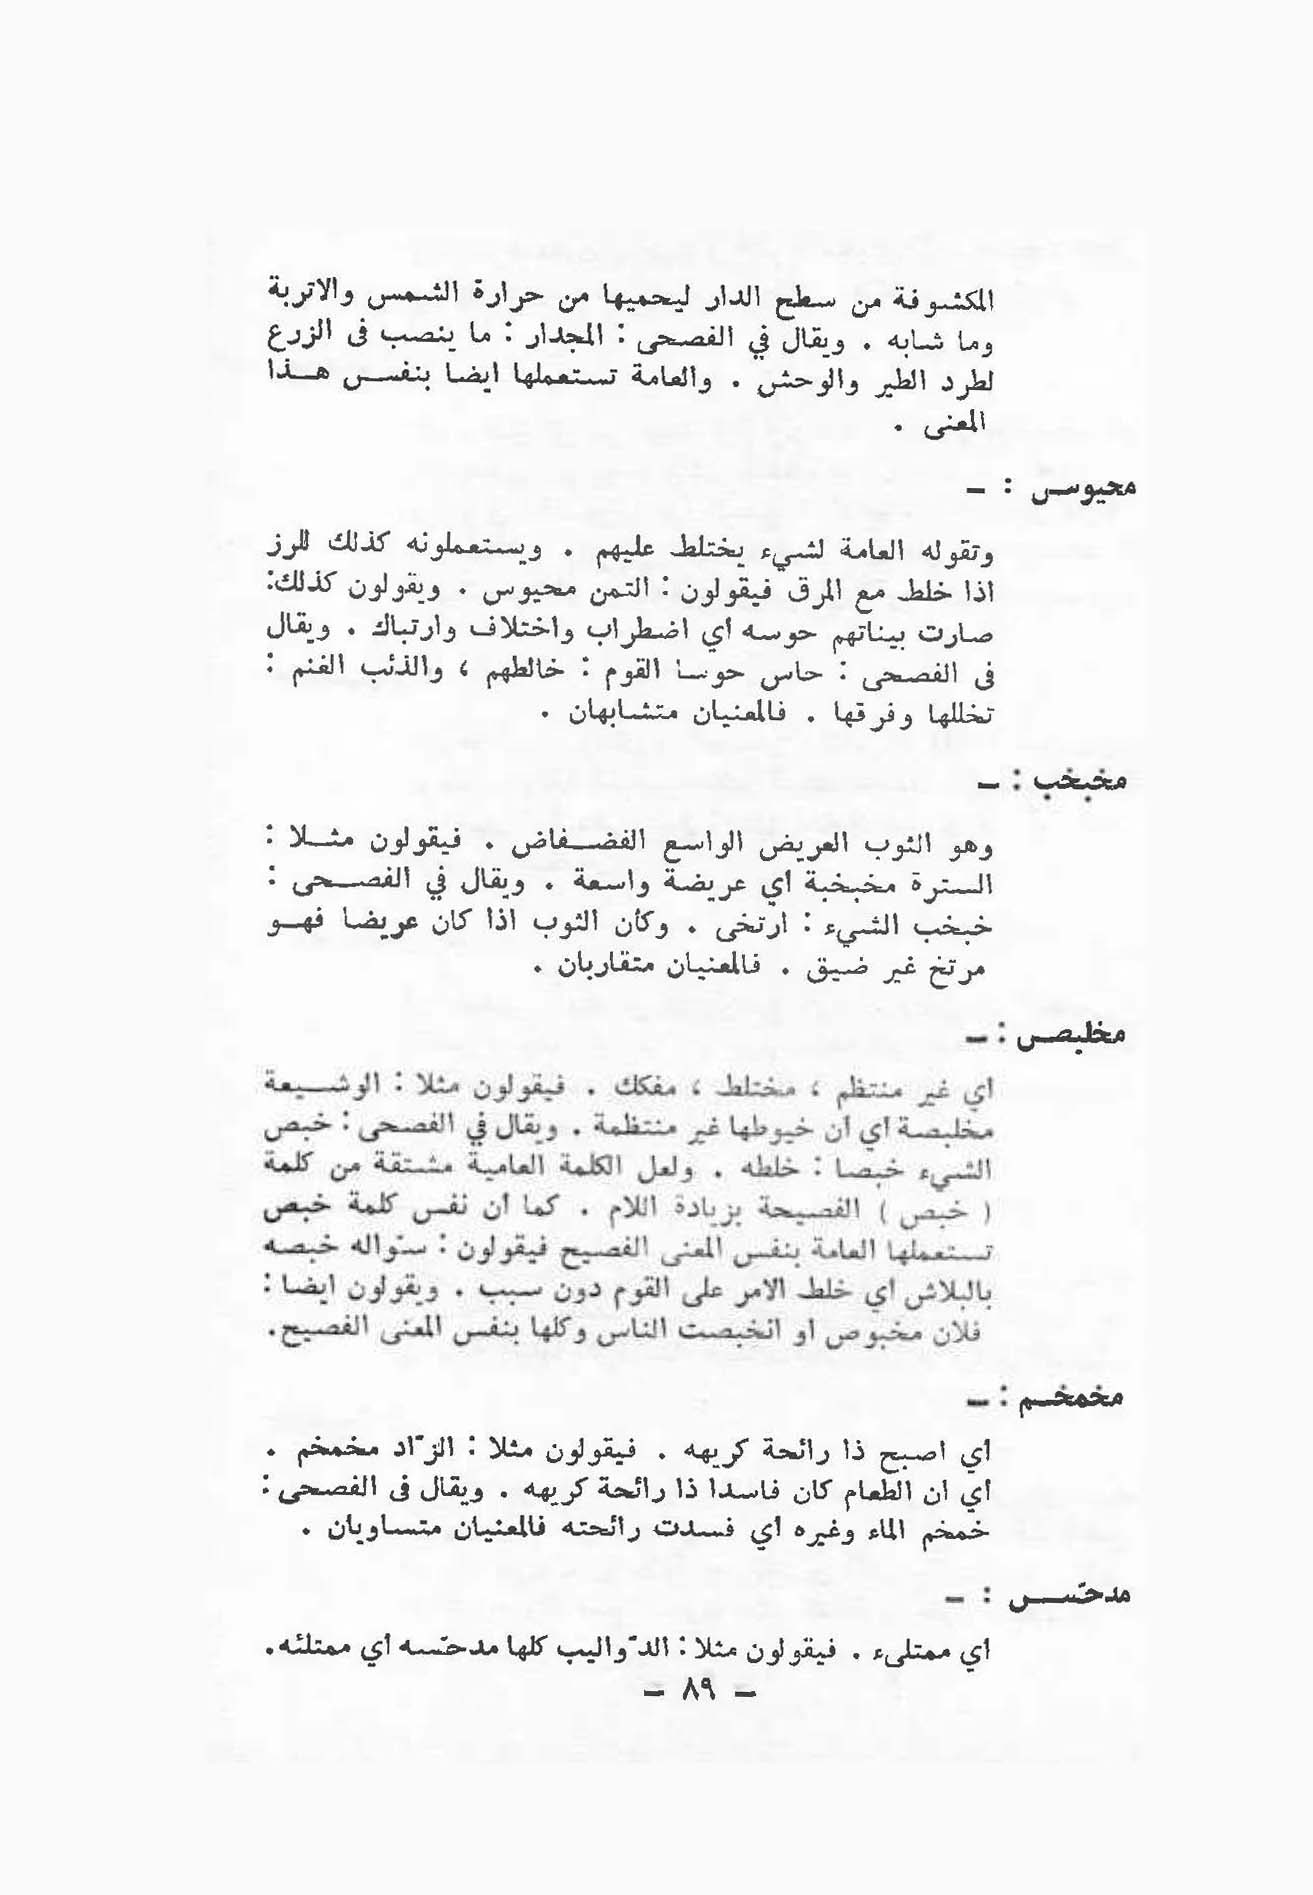 المكشوفة من سطح الدار ليحميها من حرارة الشمس والاتربة
وما شابه . ويقال في الفصحى : المجدار : ما ينصب فى الزرع
لطرد الطير والوحش . والعامة تستعملها ايضا بنفس هذا
المعنى .
محيوس : -
وتقوله العامة لشيء يختلط عليهم . ويستعملونه كذلك للرز
اذا خلط مع المرق فيقولون : التمن محيوس . ويقولون كذلك:
صارت بيناتهم حوسه أي اضطراب واختلاف وارتباك . ويقال
فى الفصحى : حاس حوسا القوم : خالطهم ، والذئب الغنم :
تخللها وفرقها . فالمعنيان متشابهان .
مخبخب : -
وهو الثوب العريض الواسع الفضفاض . فيقولون مثلا :
السترة مخبخبة أي عريضة واسعة . ويقال في الفصحى :
خبخب الشيء : ارتخى . وكأن الثوب اذا كان عريضا فهو
مرتخ غير ضيق . فالمعنيان متقاربان .
مخلبص : -
أي غير منتظم ، مختلط ، مفكك . فيقولون مثلا : الوشيعة
مخلبصة أي أن خيوطها غير منتظمة . ويقال في الفصحى : خبص
الشيء خبصا : خلطه . ولعل الكلمة العامية مشتقة من كلمة
( خبص ) الفصيحة بزيادة اللام . كما أن نفس كلمة خبص
تستعملها العامة بنفس المعنى الفصيح فيقولون : سنواله خبصه
بالبلاش أي خلط الامر على القوم دون سبب . ويقولون ايضا :
فلان مخبوص او انخبصت الناس وكلها بنفس المعنى الفصيح.
مخمخم : -
أي اصبح ذا رائحة كريهه . فيقولون مثلا : الزّاد مخمخم .
أي ان الطعام كان فاسدا ذا رائحة كريهه . ويقال فى الفصحى :
خمخم الماء وغيره أي فسدت رائحته فالمعنيان متساويان .
مدحّس : -
أي ممتلىء . فيقولون مثلا : الدّواليب كلها مدحّسه أي ممتلئه.
- ٨٩ -